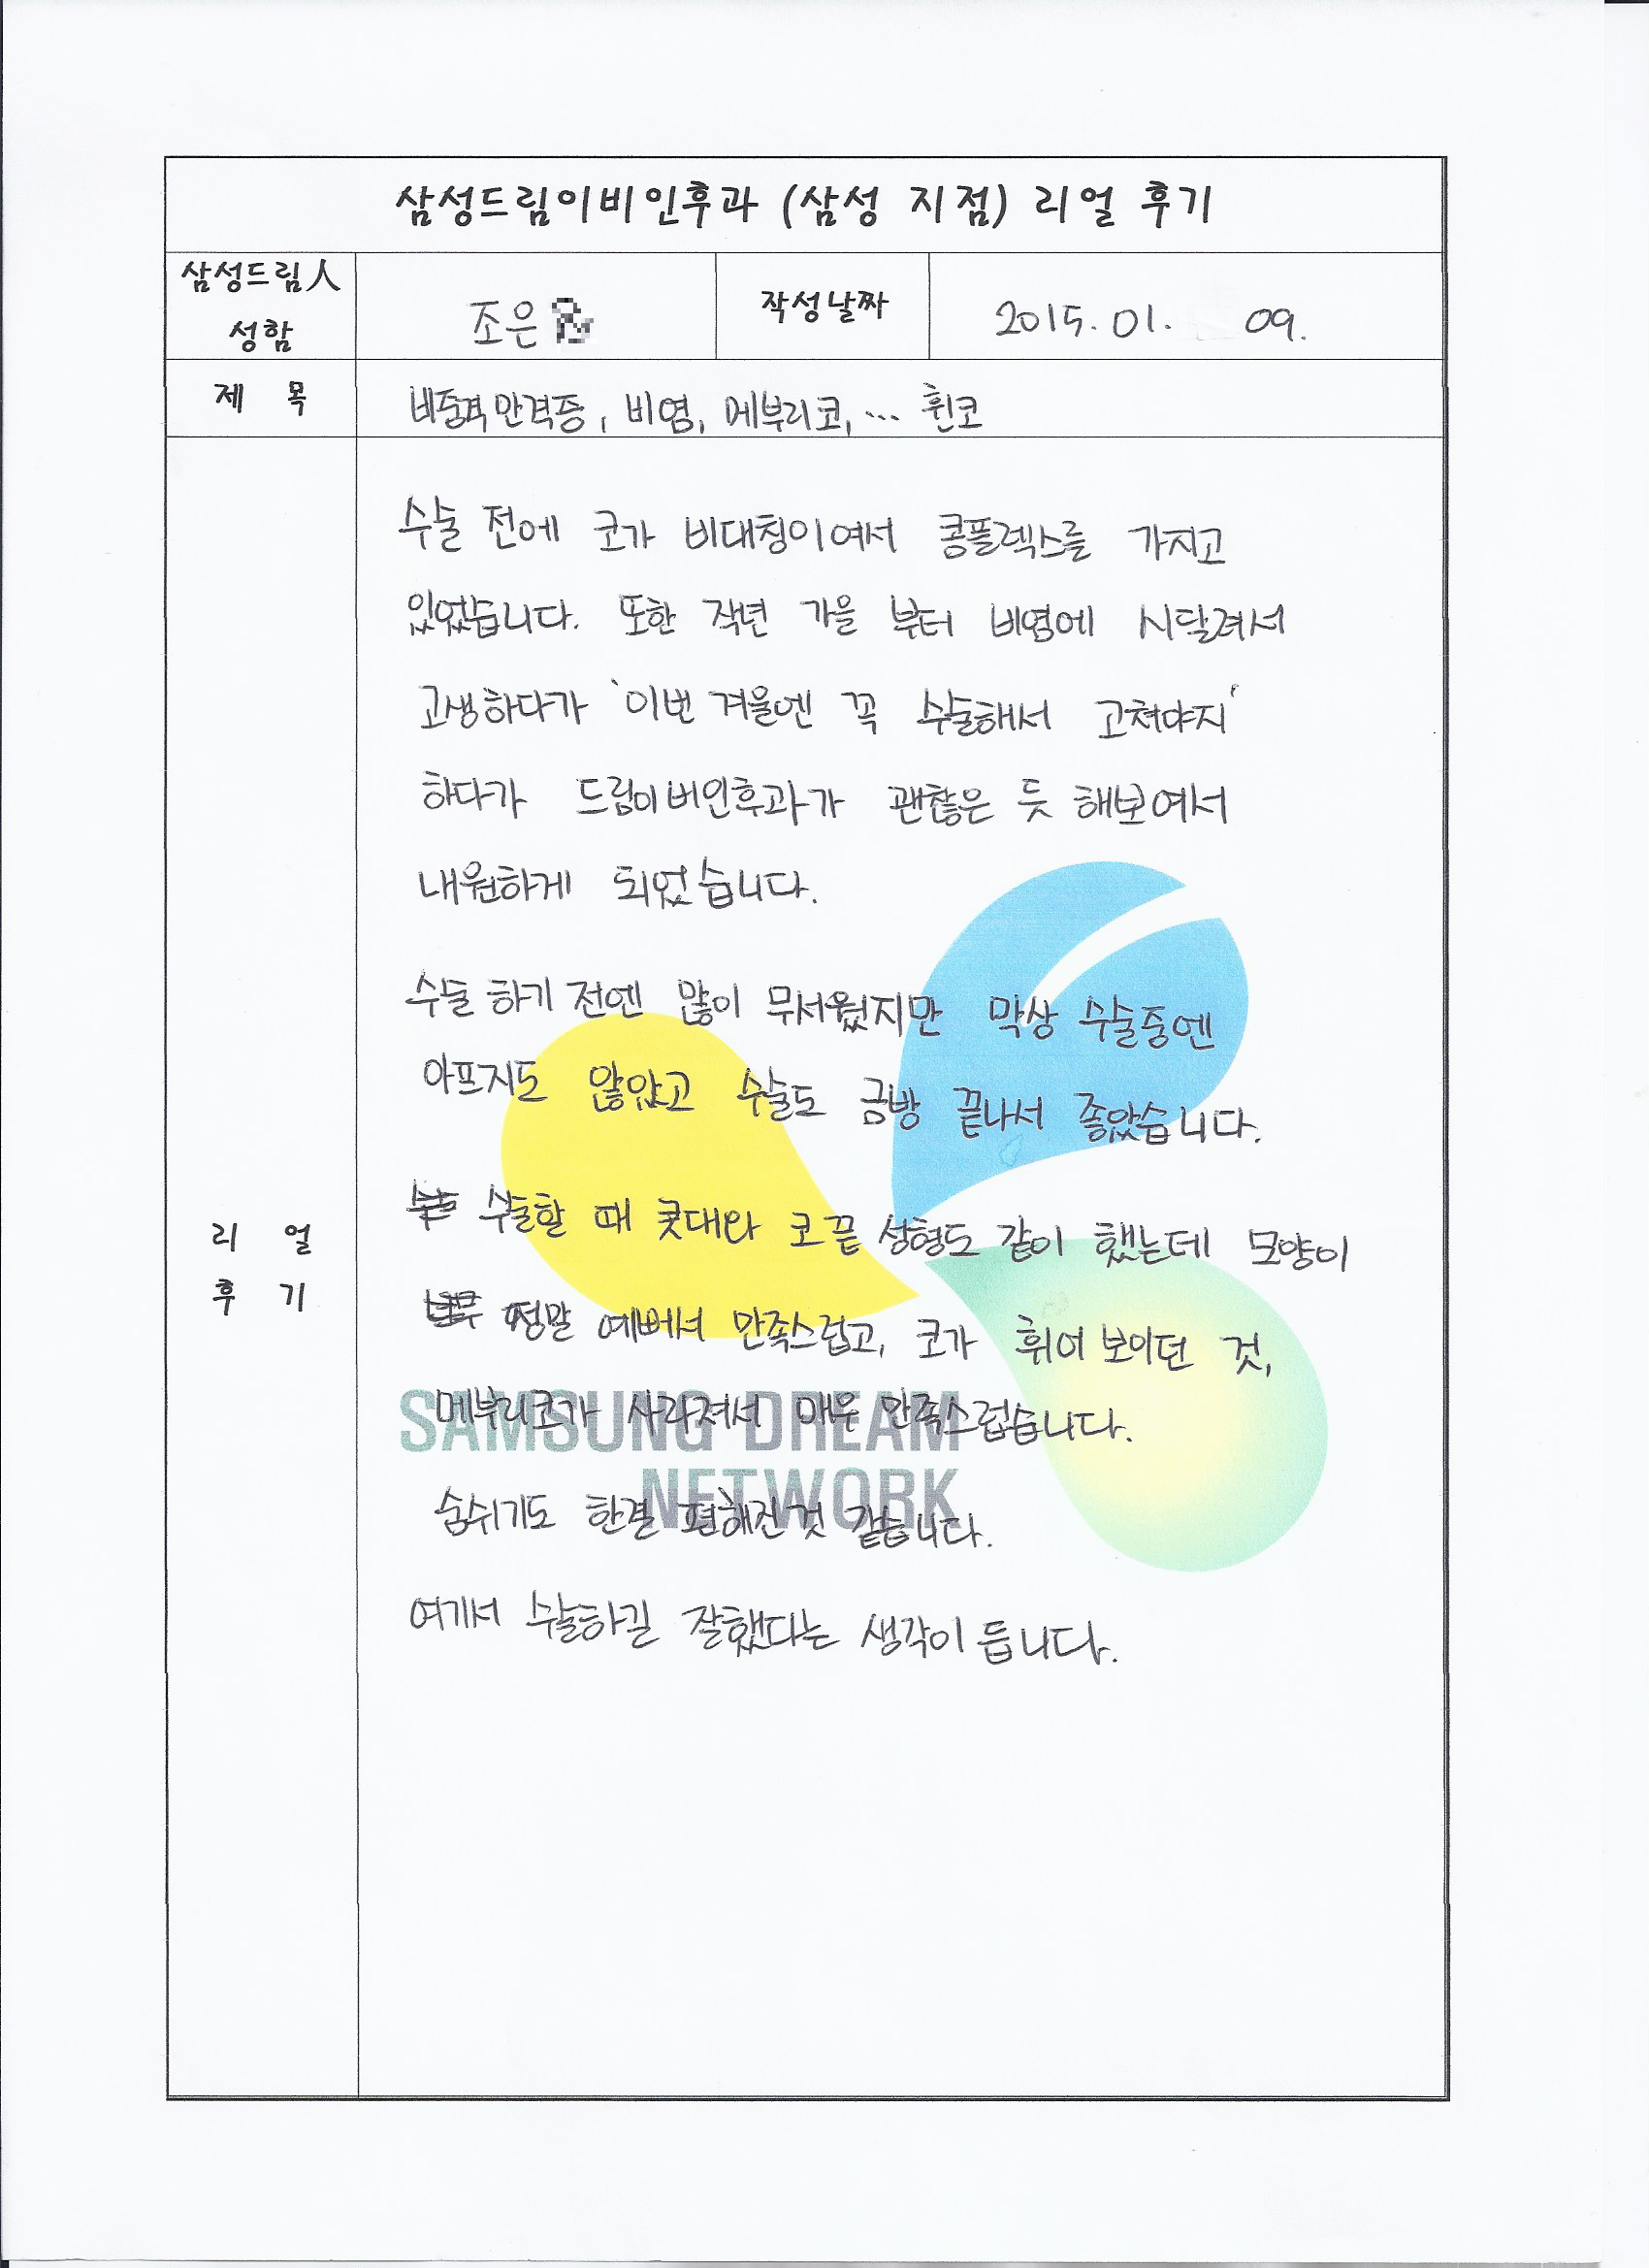 삼성드림이비인후과 (삼성 지점) 리얼 후기
삼성드림人
성함
조은
작성날짜
2015. 01. 09.
제 목
비염, 메부리코, ... 휜코
수술 전에 코가 비대칭이여서 콩플렉스를 가지고
있었습니다. 또한 작년 가을 부터 비염에 시달려서
고생하다가 '이번 겨울엔 꼭 수술해서 고쳐야지'
하다가 드림이비인후과가 괜찮은 듯 해보여서
내원하게 되었습니다.
수술 하기 전엔 많이 무서웠지만 막상 수술중엔
아프지도 않았고 수술도 금방 끝나서 좋았습니다.
수술할 때 콧대와 코끝 성형도 같이 했는데 모양이
정말 예뻐서 만족스럽고, 코가 휘어 보이던 것,
메부리코가 사라져서 매우 만족스럽습니다.
숨쉬기도 한결 편해진것 같습니다.
여기서 수술하길 잘했다는 생각이 듭니다.
리 얼
후 기
SAMSUNG DREAM
NETWORK